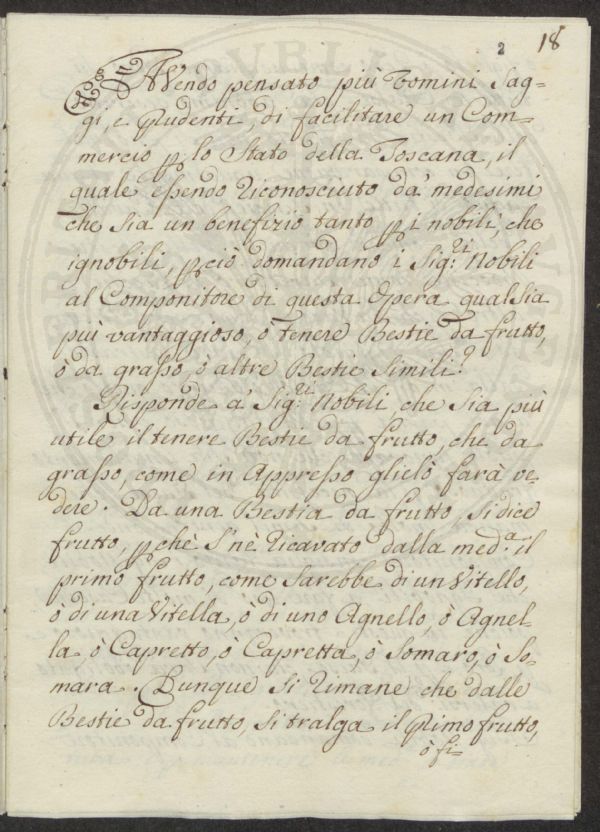 2 18
AVendo pensato più Uomini Sag=
gi, e Prudenti, di facilitare un Com=
mercio p lo Stato della Toscana, il
quale essendo riconosciuto da' medesimi
che sia un benefizio tanto p i nobili, che
ignobili, p ciò domandano i Sig:ri Nobili
al Componitore di questa Opera qual Sia
più vantaggioso, ò tenere Bestie da frutto,
ò da grasso, ò altre Bestie Simili?
Risponde a' Sig:ri Nobili, che Sia più
utile il tenere Bestie da frutto, che da
grasso, come in Appresso glielò farà ve=
dere. Da una Bestia da frutto, si dice
frutto, pchè s'nè ricavato dalla med:a il
primo frutto, come Sarebbe di un Vitello,
ò di una Vitella, ò di uno Agnello, ò Agnel
la, ò Capretto, ò Capretta, ò Somaro, ò So=
mara. Dunque si rimane che dalle
Bestie da frutto, si tralga il Primo frutto,
ò fi=